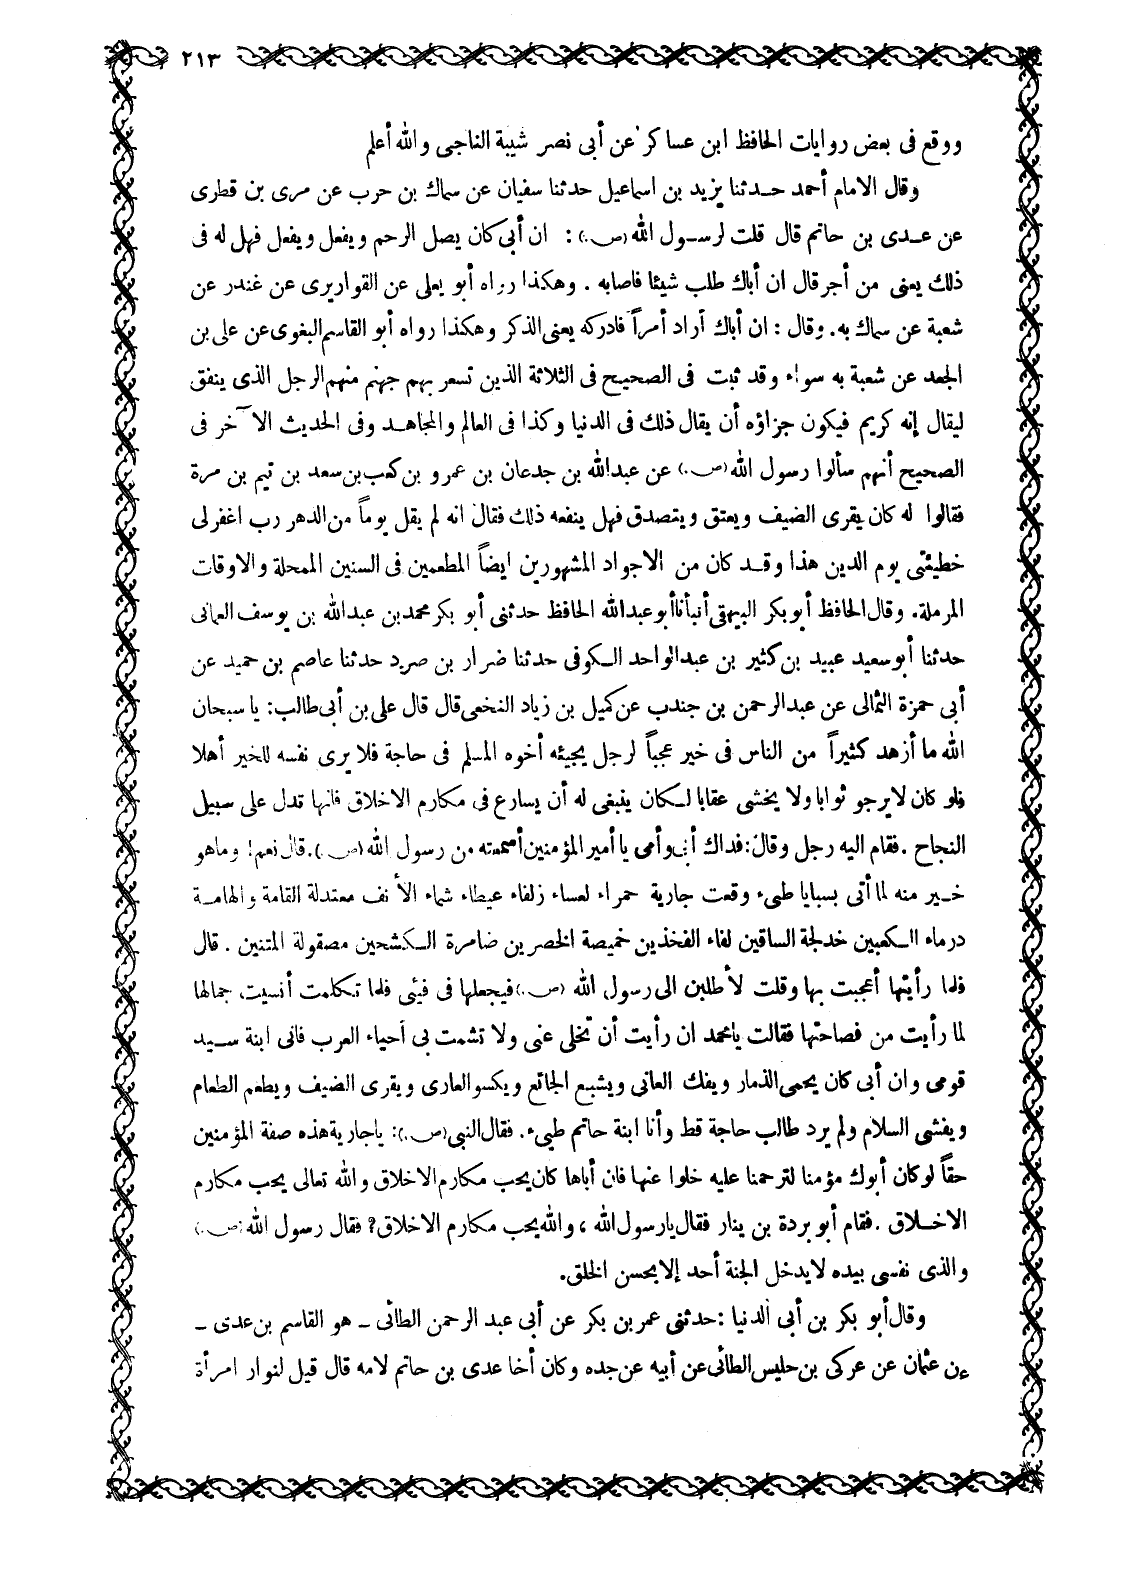 ٢١٣
ووقع فى بعض روايات الحافظ ابن عساكر عن أبى نصر شيبة الناجى والله أعلم
وقال الامام أحمد حدثنا يزيد بن اسماعيل حدثنا سفيان عن سماك بن حرب عن مرى بن قطرى
عن عدى بن حاتم قال قلت لرسول الله (ص.) : ان أبى كان يصل الرحم ويفعل ويفعل فهل له فى
ذلك يعنى من أجر قال ان أباك طلب شيئا فاصابه . وهكذا رواه أبو يعلى عن القواريرى عن غندر عن
شعبة عن سماك به. وقال : ان أباك أراد أمراً فادركه يعنى الذكر وهكذا رواه أبو القاسم البغوى عن على بن
الجعد عن شعبة به سواء وقد ثبت فى الصحيح فى الثلاثة الذين تسعر بهم جهنم منهم الرجل الذى ينفق
ليقال إنه كريم فيكون جزاؤه أن يقال ذلك فى الدنيا وكذا فى العالم والمجاهد وفى الحديث الآخر فى
الصحيح أنهم سألوا رسول الله (ص.) عن عبدالله بن جدعان بن عمرو بن كعب بن سعد بن تيم بن مرة
فقالوا له كان يقرى الضيف ويعتق ويتصدق فهل ينفعه ذلك فقال انه لم يقل يوماً من الدهر رب اغفر لى
خطيئتى يوم الدين هذا وقد كان من الاجواد المشهورين ايضاً المطعمين فى السنين الممحلة والاوقات
المرملة. وقال الحافظ أبو بكر البيهقى أنبأنا أبو عبدالله الحافظ حدثنى أبو بكر محمد بن عبدالله بن يوسف العمانى
حدثنا أبو سعيد عبيد بن كثير بن عبدالواحد الكوفى حدثنا ضرار بن صرد حدثنا عاصم بن حميد عن
أبى حمزة الثمالى عن عبدالرحمن بن جندب عن كميل بن زياد النخعى قال قال على بن أبى طالب: يا سبحان
الله ما أزهد كثيراً من الناس فى خير عجباً لرجل يجيئه أخوه المسلم فى حاجة فلا يرى نفسه للخير أهلا
فلو كان لا يرجو ثوابا ولا يخشى عقابا لكان ينبغى له أن يسارع فى مكارم الاخلاق فانها تدل على سبيل
النجاح . فقام اليه رجل وقال: فداك أبى وأمى يا أمير المؤمنين أسمعته من رسول الله (ص.). قال نعم! وما هو
خير منه لما أتى بسبايا طيء وقعت جارية حمراء لعساء زلفاء عيطاء شماء الأنف معتدلة القامة والهامة
درماء الكعبين خدلجة الساقين لفاء الفخذين خميصة الخصرين ضامرة الكشحين مصقولة المتنين . قال
فلما رأيتها أعجبت بها وقلت لأطلبن الى رسول الله (ص.) فيجعلها فى فيئى فلما تكلمت أنسيت جمالها
لما رأيت من فصاحتها فقالت يا محمد ان رأيت أن تخلى عنى ولا تشمت بى أحياء العرب فانى ابنة سيد
قومى وان أبى كان يحمى الذمار ويفك العانى ويشبع الجائع ويكسو العارى ويقرى الضيف ويطعم الطعام
ويفشى السلام ولم يرد طالب حاجة قط وأنا ابنة حاتم طيء. فقال النبى (ص.): يا جارية هذه صفة المؤمنين
حقاً لو كان أبوك مؤمنا لترحمنا عليه خلوا عنها فان أباها كان يحب مكارم الاخلاق والله تعالى يحب مكارم
الاخلاق . فقام أبو بردة بن ينار فقال يا رسول الله ، والله يحب مكارم الاخلاق? فقال رسول الله (ص.)
والذى نفسى بيده لا يدخل الجنة أحد إلا بحسن الخلق.
وقال أبو بكر بن أبى الدنيا : حدثنى عمر بن بكر عن أبى عبد الرحمن الطائى ـ هو القاسم بن عدى ـ
عن عثمان عن عركى بن حليس الطائى عن أبيه عن جده وكان أخا عدى بن حاتم لامه قال قيل لنوار امرأة